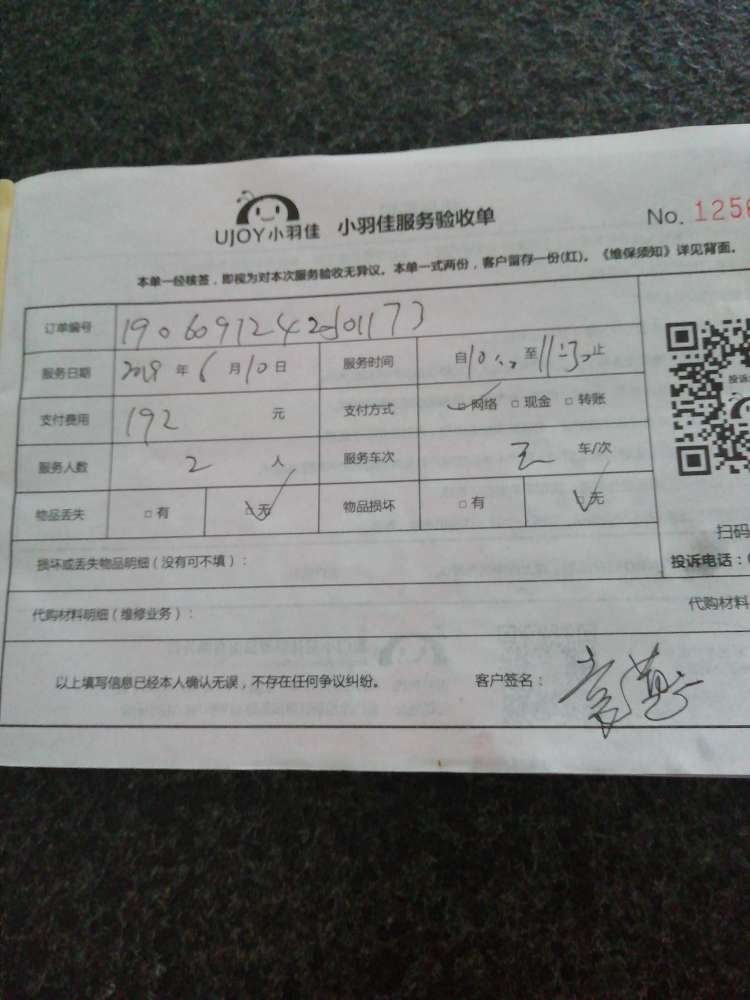 UJOY小羽佳 小羽佳服务验收单 No. 1256
本单一经核签，即视为对本次服务验收无异议。本单一式两份，客户留存一份(红)。《维保须知》详见背面。
订单编号
服务日期 年 6 月 10 日 服务时间 自 10 至 11:30 止
支付费用 192 元 支付方式 □网络 □现金 □转账
服务人数 2 人 服务车次 车/次
投诉
物品丢失 □有 □无 物品损坏 □有 □无
扫码
损坏或丢失物品明细（没有可不填）： 投诉电话：0
代购材料明细（维修业务）： 代购材料
以上填写信息已经本人确认无误，不存在任何争议纠纷。 客户签名：